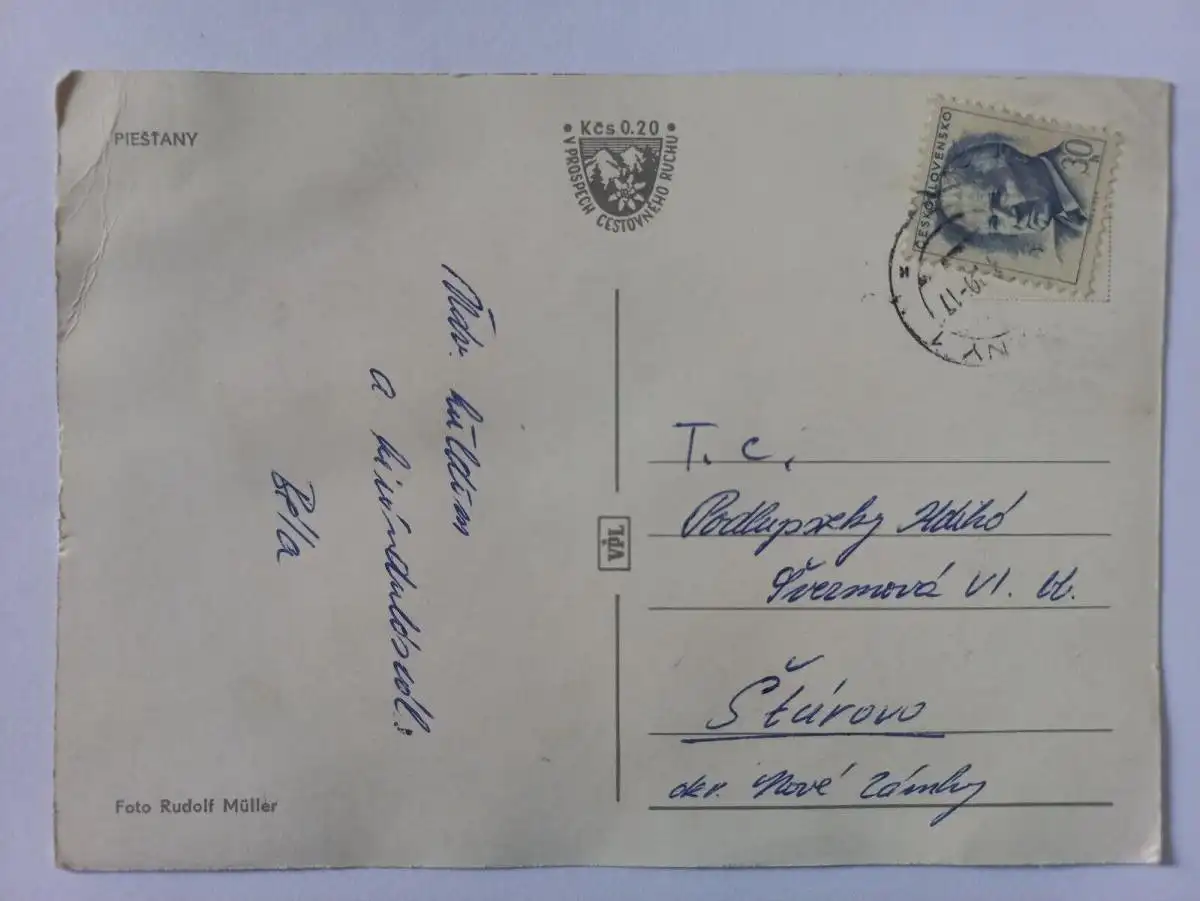 PIEŠŤANY
• Kčs 0.20 •
V PROSPECH CESTOVNÉHO RUCHU
ČESKOSLOVENSKO
30 h
NY 1
küldöm
a kirándulásról:
Béla
VpL
T. C.
Podlupszky Ildikó
Švermová VI. bl.
Štúrovo
okr. Nové Zámky
Foto Rudolf Müller